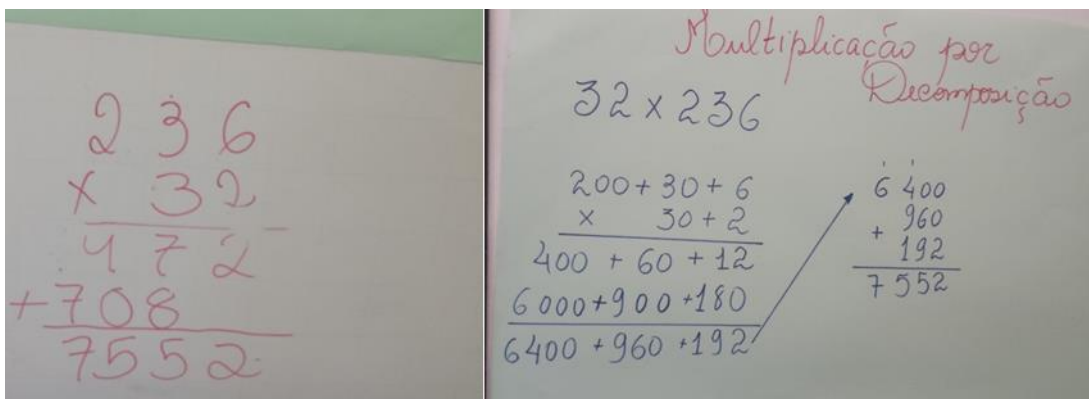 236
x 32
472
+708
7552
Multiplicação por
Decomposição
32 x 236
200+30+6
x 30+2
400 + 60 + 12
6000+900+180
6400 +960 +192
6 400
+ 960
192
7 552